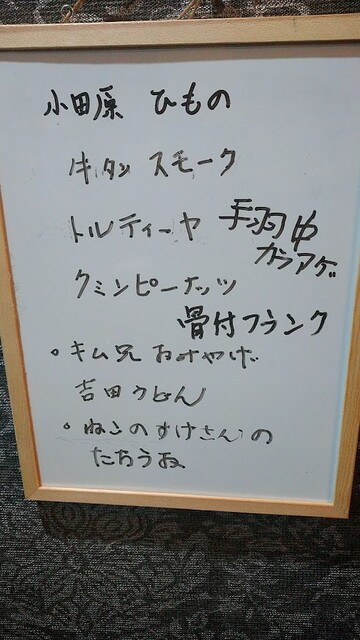 小田原 ひもの
牛タン スモーク
トルティーヤ
手羽中
カラアゲ
クミンピーナッツ
骨付フランク
• キム兄 おみやげ
吉田うどん
• ねこのすけさんの